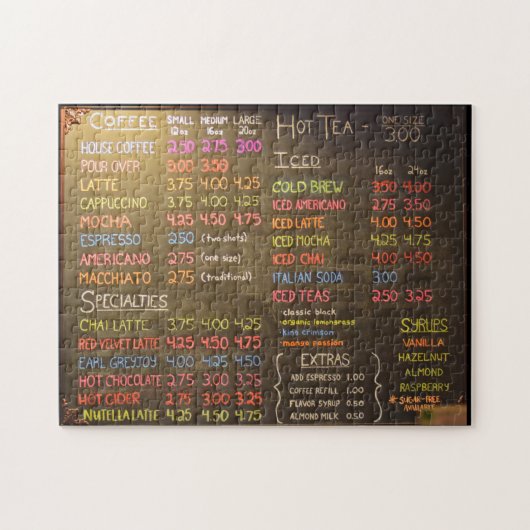 COFFEE SMALL 12oz MEDIUM 16oz LARGE 20oz
HOUSE COFFEE 2.50 2.75 3.00
POUR OVER 3.00 3.50
LATTE 3.75 4.00 4.25
CAPPUCCINO 3.75 4.00 4.25
MOCHA 4.25 4.50 4.75
ESPRESSO 2.50 (two shots)
AMERICANO 2.75 (one size)
MACCHIATO 2.75 (traditional)
SPECIALTIES
CHAI LATTE 3.75 4.00 4.25
RED VELVET LATTE 4.25 4.50 4.75
EARL GREYJOY 4.00 4.25 4.50
HOT CHOCOLATE 2.75 3.00 3.25
HOT CIDER 2.75 3.00 3.25
NUTELLA LATTE 4.25 4.50 4.75
HOT TEA - ONE SIZE 3.00
ICED 16oz 24oz
COLD BREW 3.50 4.00
ICED AMERICANO 2.75 3.50
ICED LATTE 4.00 4.50
ICED MOCHA 4.25 4.75
ICED CHAI 4.00 4.50
ITALIAN SODA 3.00
ICED TEAS 2.50 3.25
classic black
organic lemongrass
king crimson
mango passion
EXTRAS
ADD ESPRESSO 1.00
COFFEE REFILL 1.00
FLAVOR SYRUP 0.50
ALMOND MILK 0.50
SYRUPS
VANILLA
HAZELNUT
ALMOND
RASPBERRY
* SUGAR-FREE
AVAILABLE